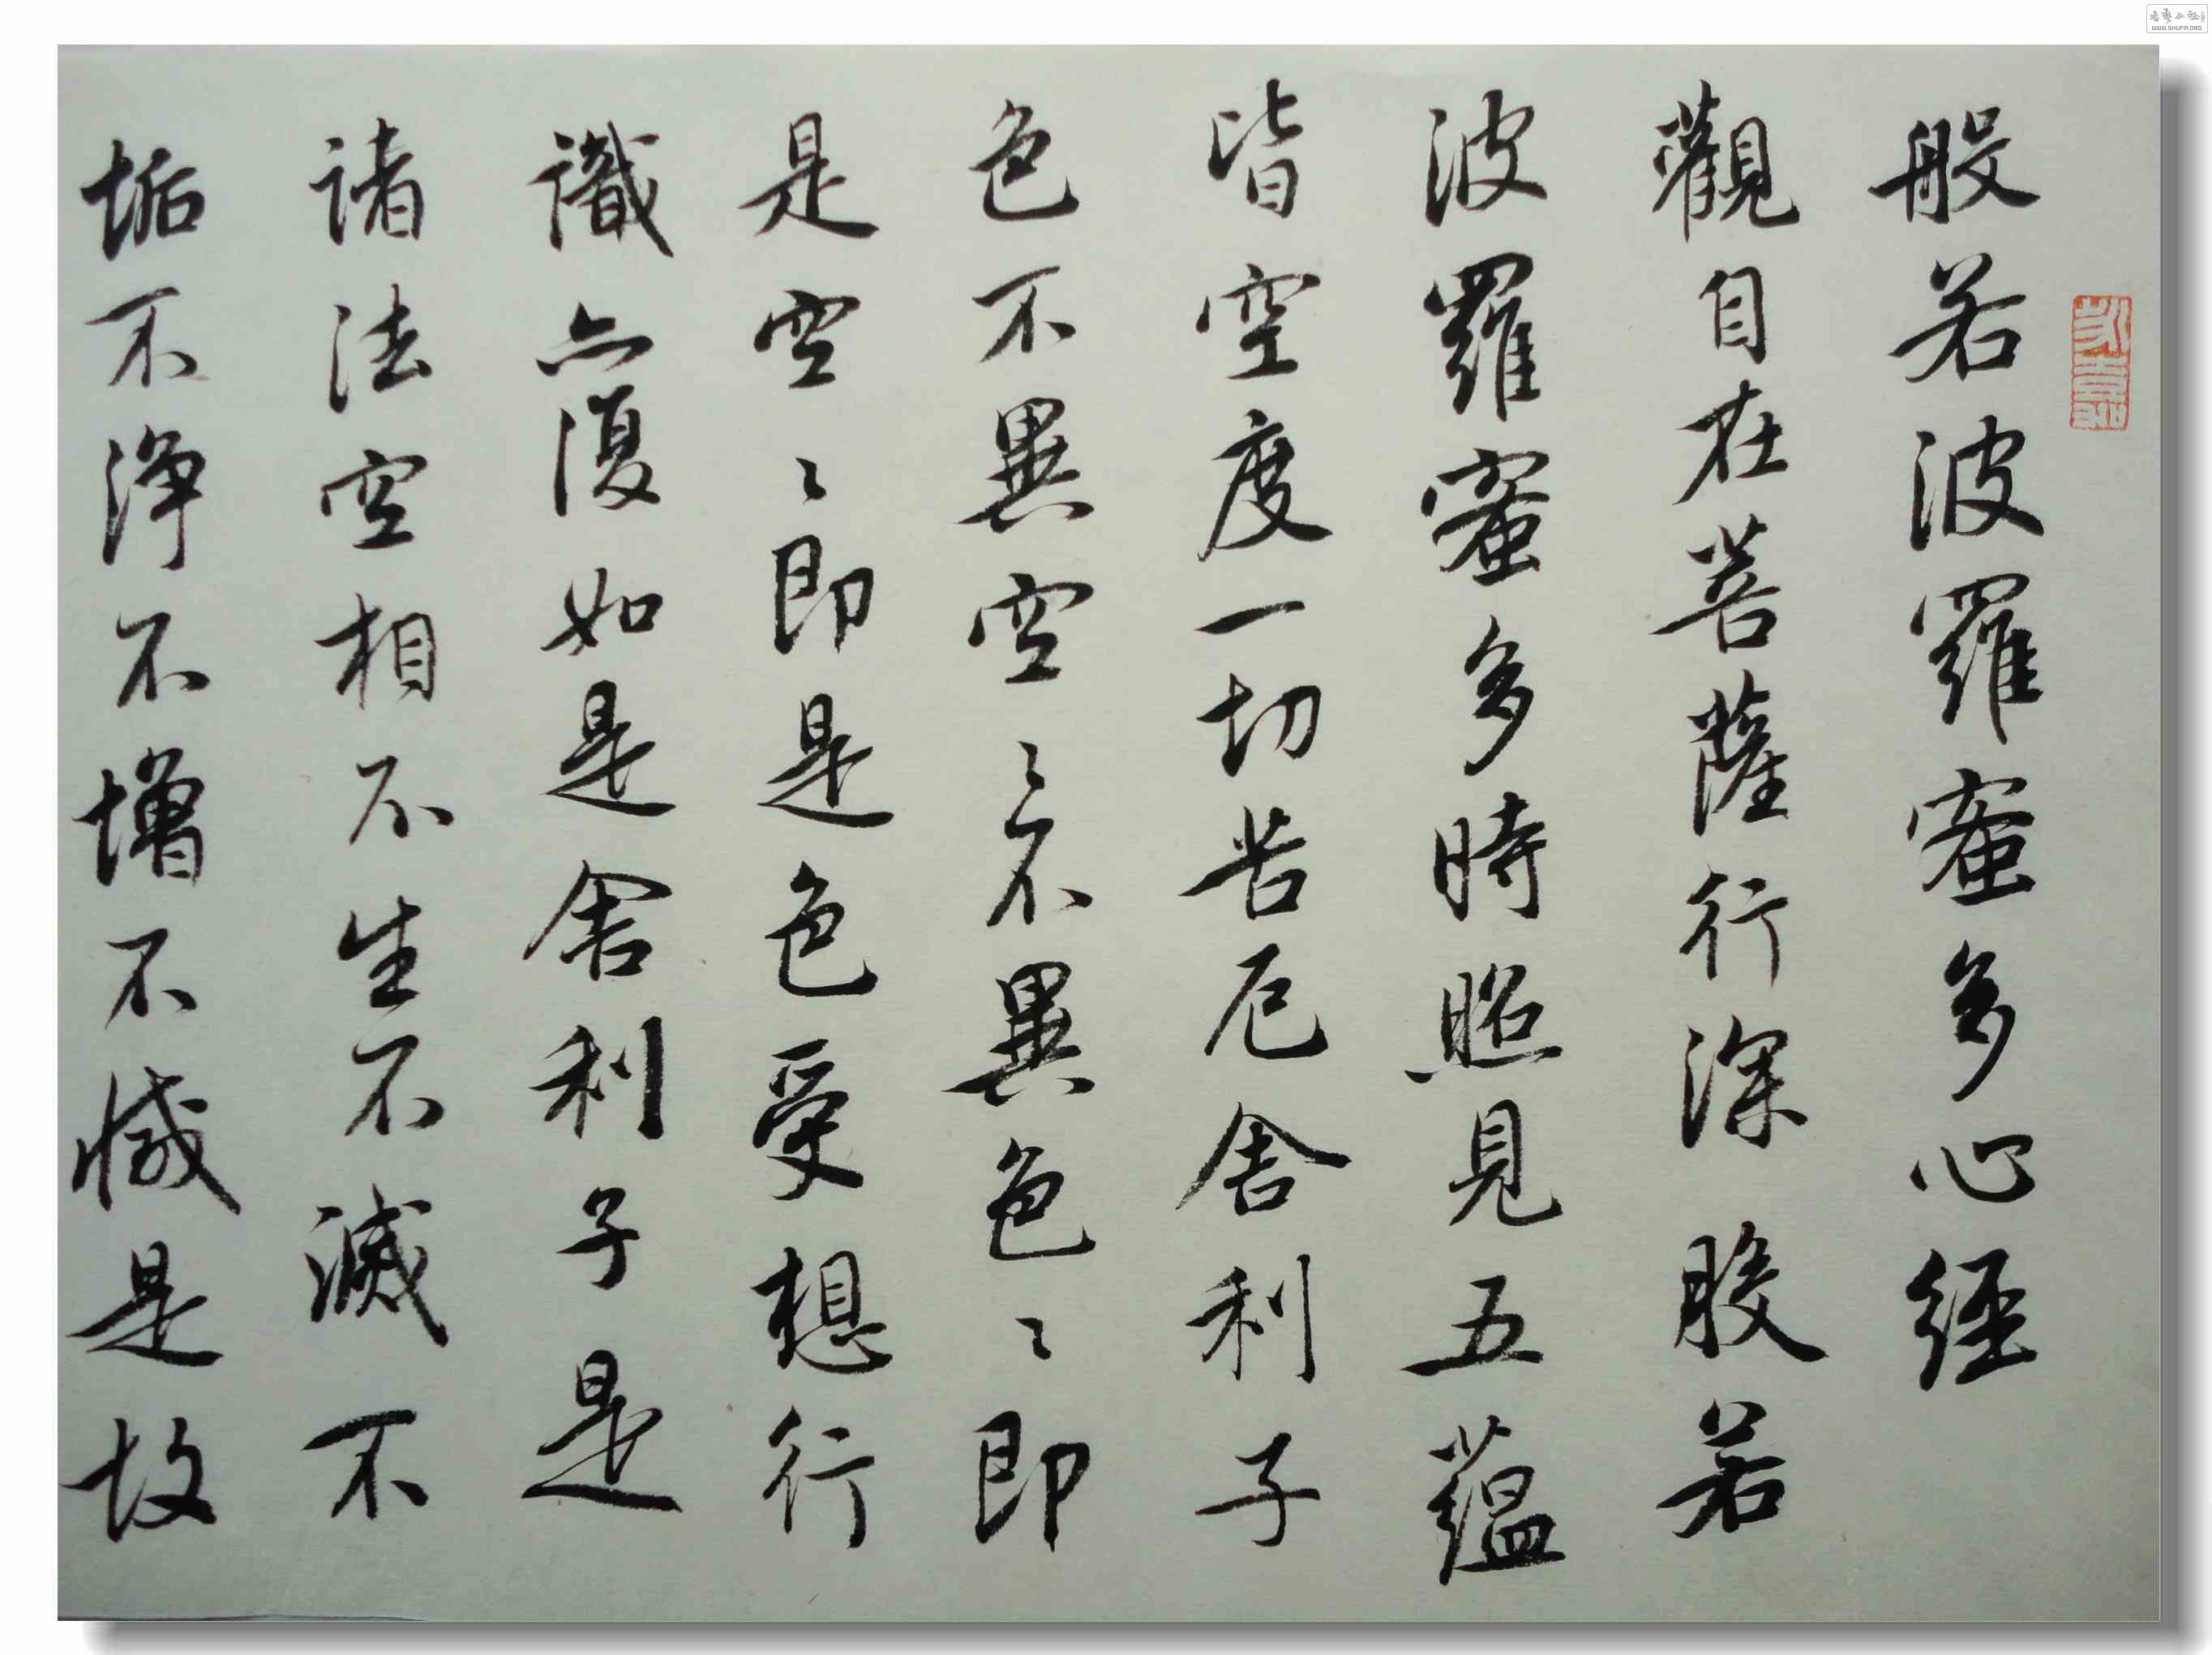 般若波羅蜜多心經
觀自在菩薩行深般若
波羅蜜多時照見五蘊
皆空度一切苦厄舍利子
色不異空〻不異色〻即
是空〻即是色受想行
識亦復如是舍利子是
諸法空相不生不滅不
垢不淨不增不減是故
WWW.SHUFA.ORG